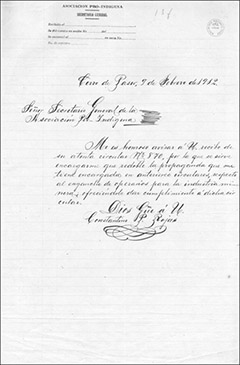 ASOCIACION PRO-INDIGENA
SECRETARIA GENERAL
Cerro de Pasco, 9 de Febrero de 1912.
Señor Secretario General de la
Asociacion Pro Indigena
Me es honroso avisar á U. recibo de
su atenta circular Nº 890, por la que se sirve
encargarme que redoble la propaganda que me
tiene encargada, en anteriores circulares, respecto
al enganche de operarios para la industria mi-
nera, ofreciendole dar cumplimiento á dicha cir-
cular.
Dios Gue á U.
Constantino P. Rojas